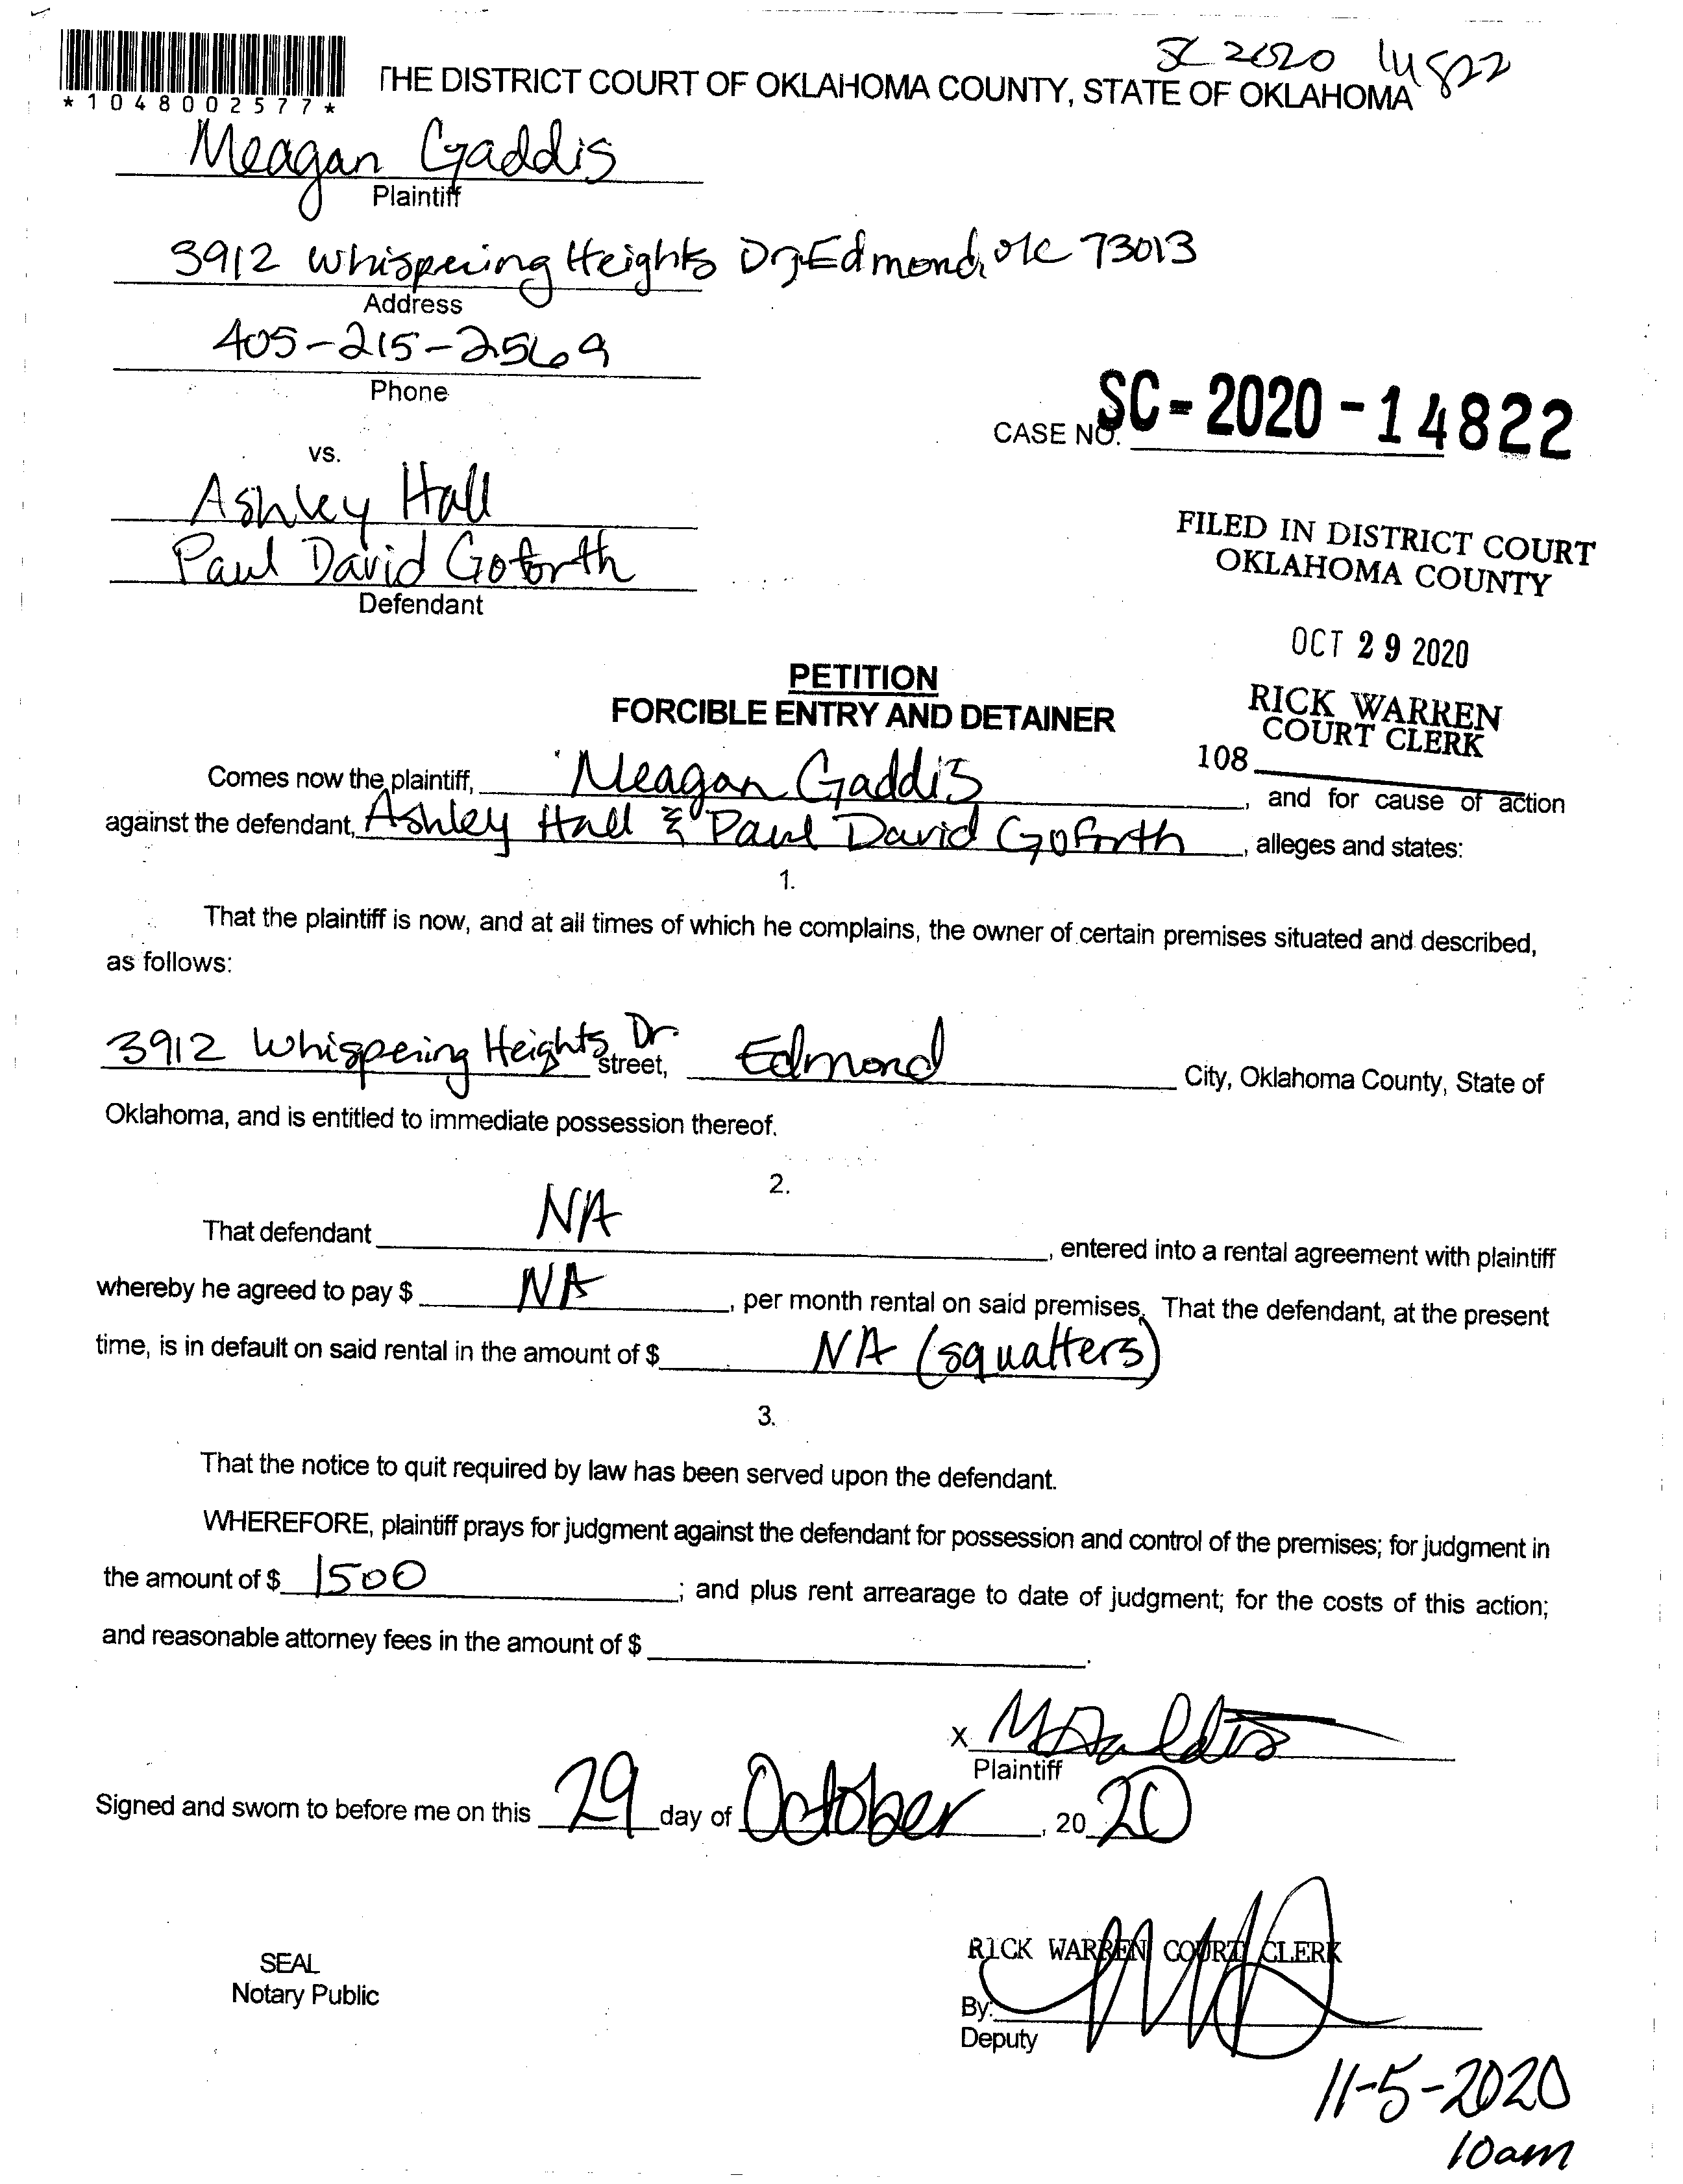 SC 2020 14822
*1048002577*
THE DISTRICT COURT OF OKLAHOMA COUNTY, STATE OF OKLAHOMA
Meagan Gaddis
Plaintiff
3912 Whispering Heights Dr, Edmond, OK 73013
Address
405-215-2569
Phone
CASE NO. SC-2020-14822
vs.
Ashley Hall
Paul David Goforth
Defendant
FILED IN DISTRICT COURT
OKLAHOMA COUNTY
OCT 29 2020
RICK WARREN
COURT CLERK
108
PETITION
FORCIBLE ENTRY AND DETAINER
Comes now the plaintiff, Meagan Gaddis, and for cause of action
against the defendant, Ashley Hall & Paul David Goforth, alleges and states:
1.
That the plaintiff is now, and at all times of which he complains, the owner of certain premises situated and described,
as follows:
3912 Whispering Heights Dr. street, Edmond City, Oklahoma County, State of
Oklahoma, and is entitled to immediate possession thereof.
2.
That defendant NA, entered into a rental agreement with plaintiff
whereby he agreed to pay $ NA, per month rental on said premises, That the defendant, at the present
time, is in default on said rental in the amount of $ NA (squatters)
3.
That the notice to quit required by law has been served upon the defendant.
WHEREFORE, plaintiff prays for judgment against the defendant for possession and control of the premises; for judgment in
the amount of $ 1500; and plus rent arrearage to date of judgment; for the costs of this action;
and reasonable attorney fees in the amount of $ .
x MGaddis
Plaintiff
Signed and sworn to before me on this 29 day of October, 20 20
SEAL
Notary Public
RICK WARREN COURT CLERK
By:
Deputy
11-5-2020
10am